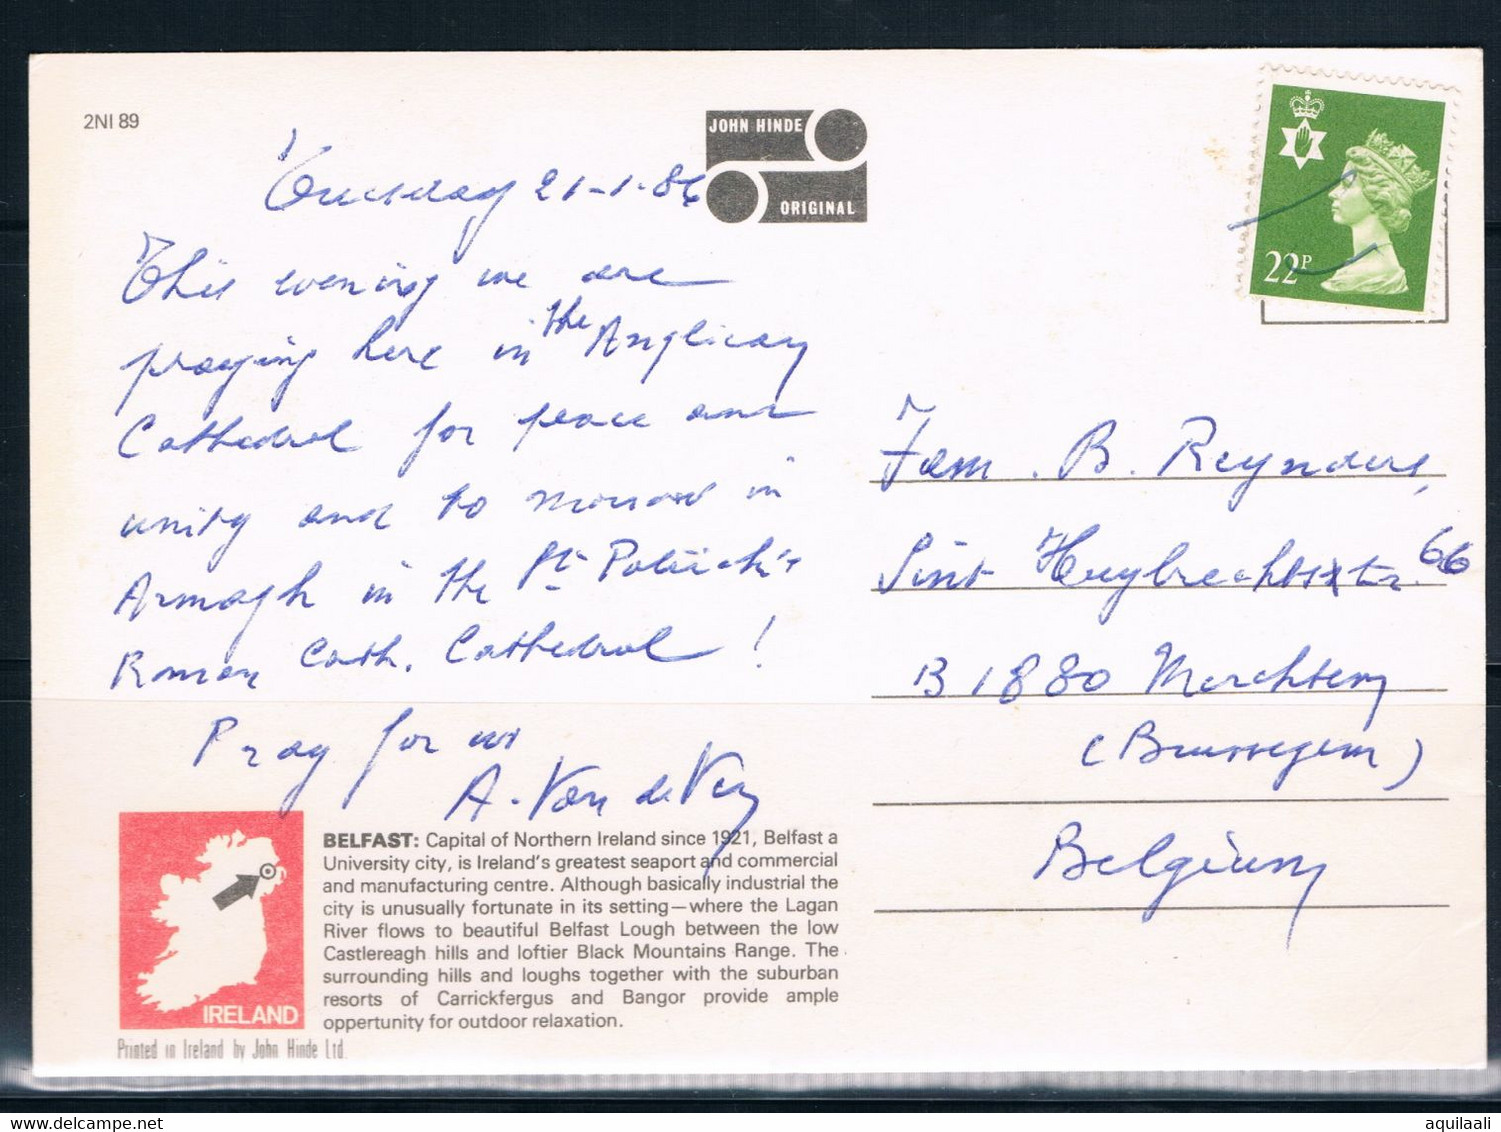 2NI 89
JOHN HINDE
ORIGINAL
Tuesday 21-1-86
This evening we are
praying here in the Anglican
Cathedral for peace and
unity and to morrow in
Armagh in the St Patrick's
Roman Cath. Cathedral !
Pray for us
A. Van de Ven
22P
Fam. B. Reynders,
Sint Huybrechtsstr. 66
B 1880 Merchtem
(Brussegem)
Belgium
IRELAND
BELFAST: Capital of Northern Ireland since 1921, Belfast a
University city, is Ireland's greatest seaport and commercial
and manufacturing centre. Although basically industrial the
city is unusually fortunate in its setting—where the Lagan
River flows to beautiful Belfast Lough between the low
Castlereagh hills and loftier Black Mountains Range. The
surrounding hills and loughs together with the suburban
resorts of Carrickfergus and Bangor provide ample
oppertunity for outdoor relaxation.
Printed in Ireland by John Hinde Ltd.
aquilaali